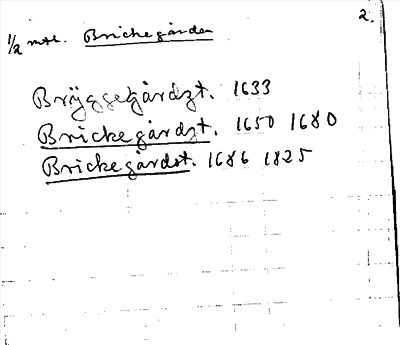 1/2 mtl. Brickegården 2.
Bryggegårdzt. 1633
Brickegårdzt. 1650 1680
Brickegårdst. 1686 1825